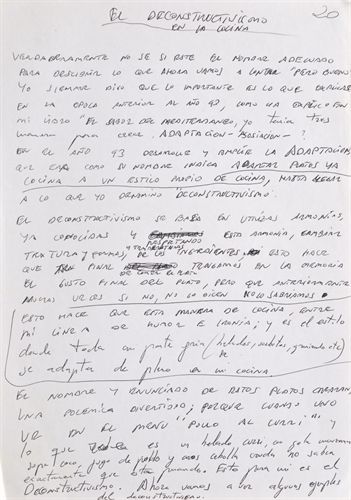 20
EL DECONSTRUCTIVISMO
EN LA COCINA
VERDADERAMENTE NO SE SI ESTE EL NOMBRE ADECUADO
PARA DESCRIBIR LO QUE AHORA VAMOS A "PERO BUENO"
YO SIEMPRE DIGO QUE LO IMPORTANTE ES LO QUE
EN LA EPOCA ANTERIOR AL AÑO 93, COMO YA EXPLICO EN
MI LIBRO "EL SABOR DEL MEDITERRANEO, yo tenia tres
maneras para crear. ADAPTACION - - ?
EN EL AÑO 93 DESARROLLE Y AMPLIE LA ADAPTACION
QUE COMO SU NOMBRE INDICA ADAPTAR PLATOS YA
COCINA A UN ESTILO PROPIO DE COCINA, HASTA LLEGAR
A LO QUE YO DENOMINO "DECONSTRUCTIVISMO".
EL DECONSTRUCTIVISMO SE BASA EN UTILIZAR ARMONIAS,
YA CONOCIDAS Y ESTA ARMONIA, CAMBIAR
RESPETANDO
TEXTURA Y FORMAS, DE LOS INGREDIENTES. ESTO HACE
QUE FINAL TENGAMOS EN LA MEMORIA
EL GUSTO FINAL DEL PLATO, PERO QUE ANTERIORMENTE
MUCHAS VECES SI NO, NO LO DICEN NO LO SABRIAMOS.
ESTO HACE QUE ESTA MANERA DE COCINA, ENTRE
MI LINEA DE HUMOR E IRONIA; y es el estilo
donde toda mi parte fria (helados, sorbetes, granizado etc)
se adapta de pleno a mi cocina.
EL NOMBRE Y ENUNCIADO DE ESTOS PLATOS CREARAN,
UNA POLEMICA DIVERTIDO; PORQUE CUANDO UNO
VE EN EL MENU "POLLO AL CURRI" Y
lo que es un helado curri, un
jugo de pollo y unos cebolla no sabra
exactamente que esta comiendo. Esto para mi es el
Deconstructivismo. Ahora vamos a ver algunos ejemplos
del deconstructivismo.